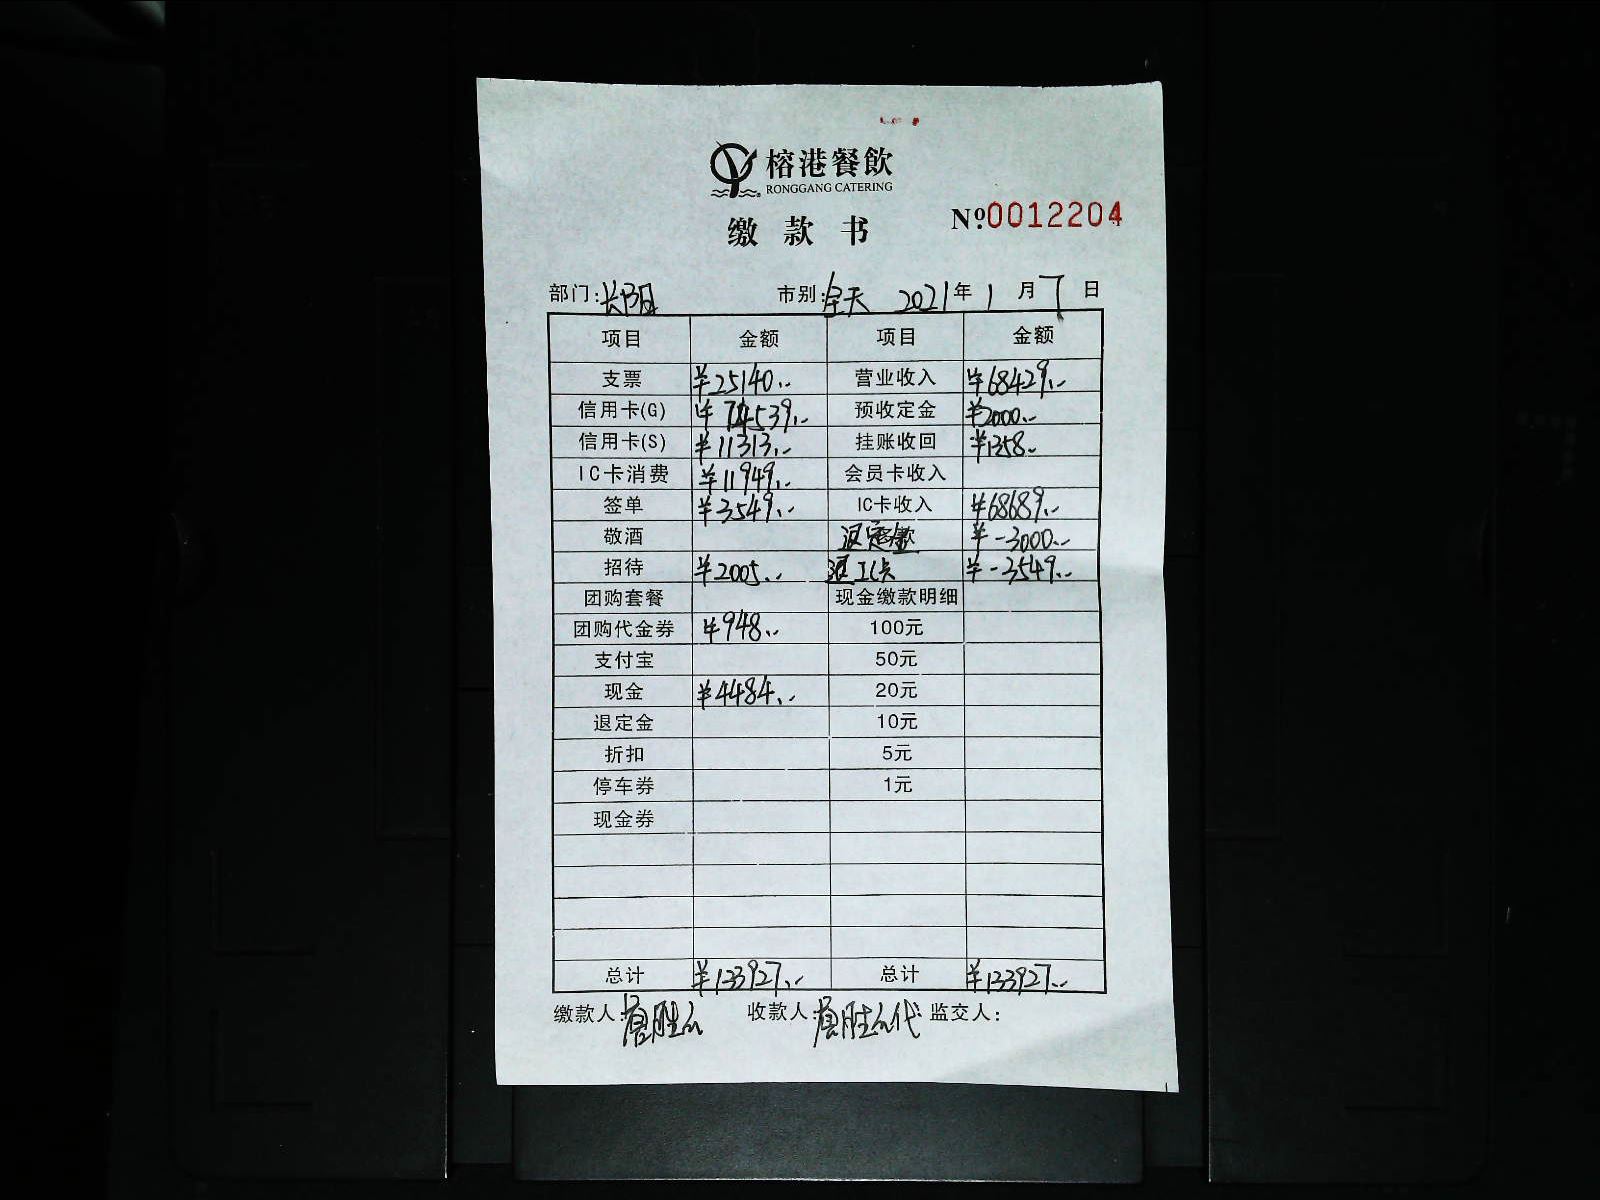 榕港餐飲
RONGGANG CATERING
缴款书 Nº.0012204
部门:长阳 市别:全天 2021年1月7日
项目 金额 项目 金额
支票 ¥25140.- 营业收入 ¥68429.-
信用卡(G) ¥74539.- 预收定金 ¥2000.-
信用卡(S) ¥11313.- 挂账收回 ¥1358.-
IC卡消费 ¥11949.- 会员卡收入
签单 ¥3549.- IC卡收入 ¥68689.-
敬酒 ¥-3000.-
招待 ¥2005.- 退IC卡 ¥-3549.-
团购套餐 现金缴款明细
团购代金券 ¥948.- 100元
支付宝 50元
现金 ¥4484.- 20元
退定金 10元
折扣 5元
停车券 1元
现金券
总计 ¥133927.- 总计 ¥133927.-
缴款人: 收款人: 代 监交人: